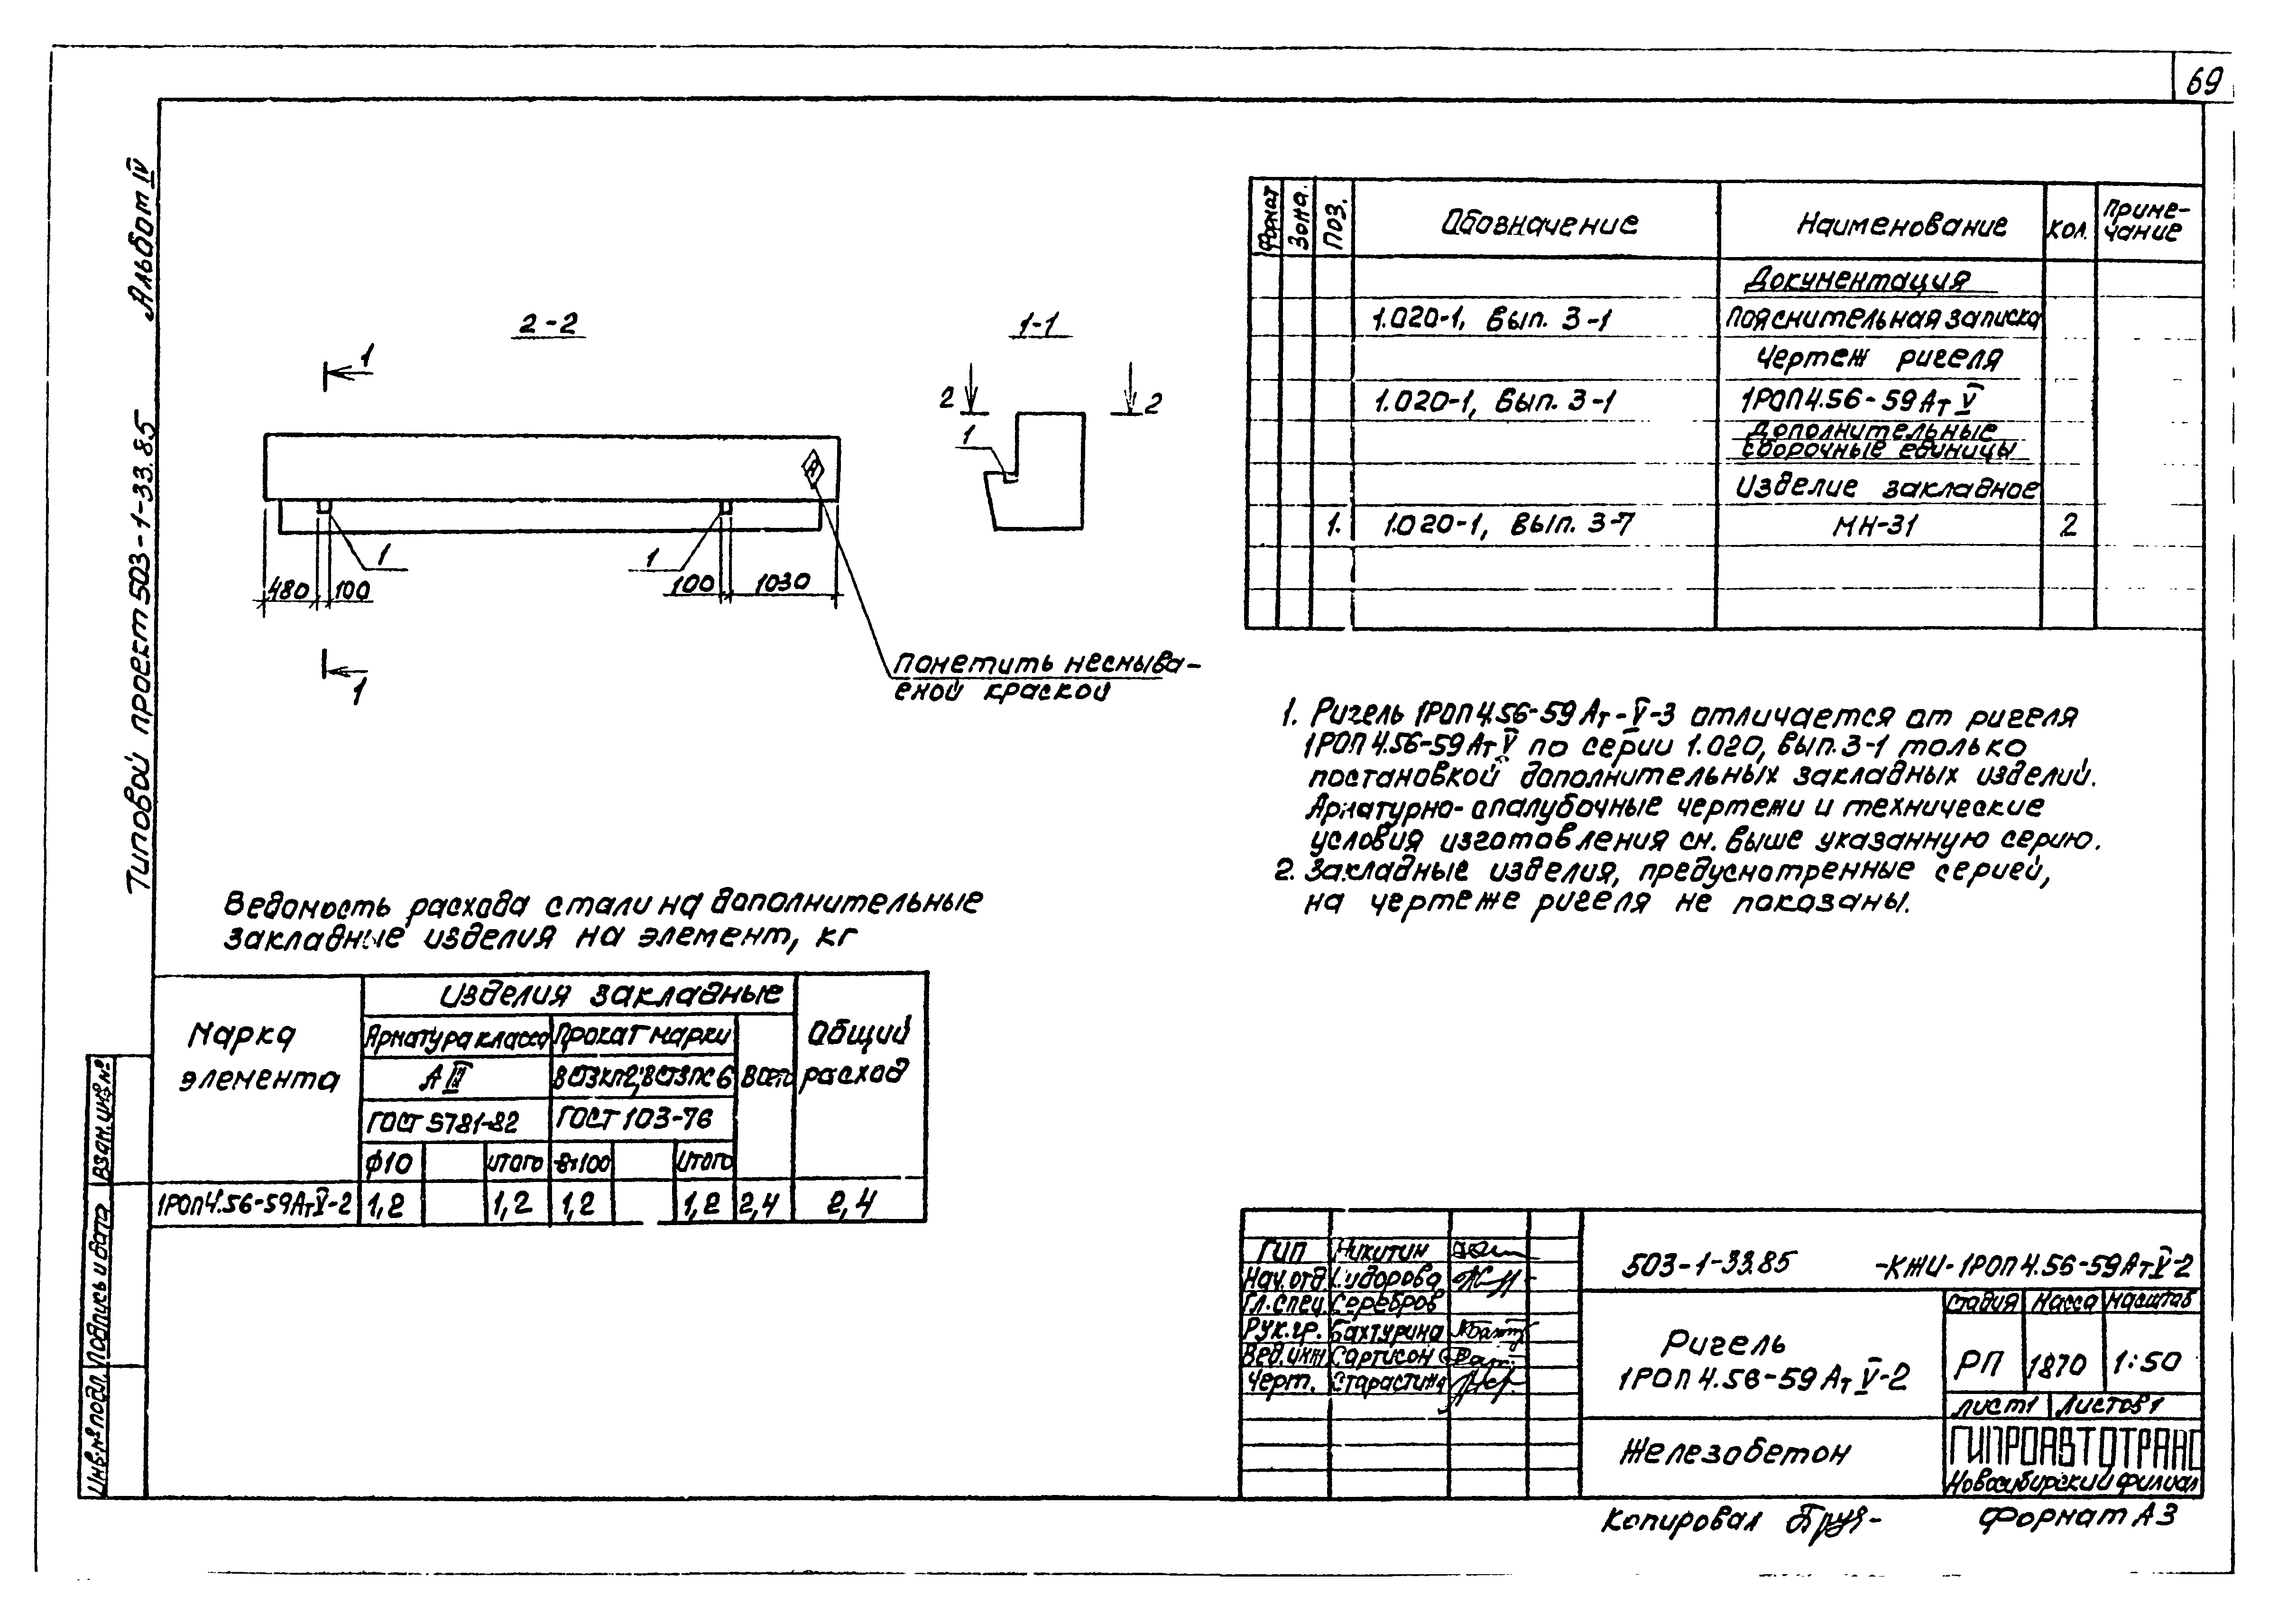 69
Альбом IV
Типовой проект 503-1-33.85
2-2
1-1
1
2
2
1
1
1
480
100
100
1030
1
пометить несмыва-
емой краской
Формат
Зона.
Поз.
Обозначение
Наименование
Кол.
Приме-
чание
Документация
1.020-1, вып. 3-1
Пояснительная записка
Чертеж ригеля
1.020-1, вып. 3-1
1РОП4.56-59АтV
Дополнительные
сборочные единицы
Изделие закладное
1.
1.020-1, вып. 3-7
МН-31
2
1. Ригель 1РОП4.56-59 Ат-V-3 отличается от ригеля
1РОП4.56-59АтV по серии 1.020, вып. 3-1 только
постановкой дополнительных закладных изделий.
Арматурно-опалубочные чертежи и технические
условия изготовления см. выше указанную серию.
2. Закладные изделия, предусмотренные серией,
на чертеже ригеля не показаны.
Ведомость расхода стали на дополнительные
закладные изделия на элемент, кг
Марка
элемента
Изделия закладные
Общий
расход
Арматура класса
Прокат марки
Всего
АIII
ВСт3кп2; ВСт3пс6
ГОСТ 5781-82
ГОСТ 103-76
ф10
итого
итого
1РОП4.56-59АтV-2
1,2
1,2
1,2
1,2
2,4
2,4
Взам. инв. №
Подпись и дата
Инв. № подл.
ГИП
Никитин
Нач. отд.
Сидорова
Гл. спец.
Серебров
Рук. гр.
Бахтурина
Вед. инж
Сартисон
Черт.
Старастина
503-1-33.85
-КЖИ-1РОП4.56-59АтV-2
Ригель
1РОП4.56-59АтV-2
Стадия
Масса
Масштаб
РП
1870
1:50
Лист 1
Листов 1
Железобетон
ГИПРОАВТОТРАНС
Новосибирский филиал
Копировал
Формат А3